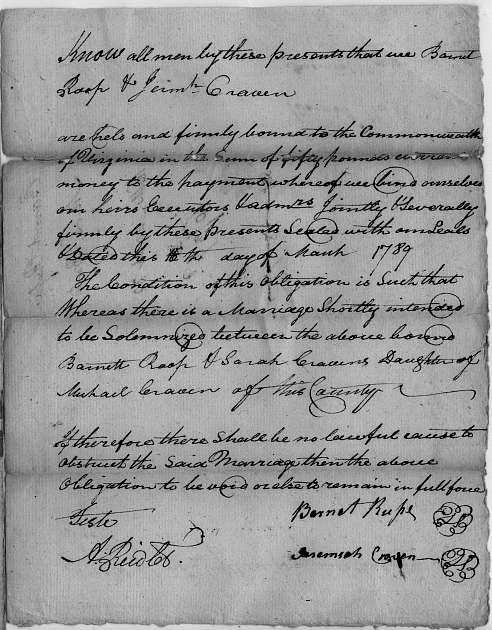 Know all men by these presents that we Barnet
Roop & Jermh Craven
are held and firmly bound to the Commonwealth
of Virginia in the Sum of fifty pounds curren
money to the payment whereof we bind ourselves
our heirs Executors & admrs Jointly & Severally
firmly by these presents Sealed with our Seals
& Dated this th day of March 1789
The Condition of this Obligation is Such that
Whereas there is a Marriage Shortly intended
to be Solemnized between the above bound
Barnett Roop & Sarah Cravens Daughter of
Michael Craven of this County
If therefore there Shall be no lawful cause to
obstruct the Said Marriage then the above
Obligation to be void or else to remain in full force
Teste Barnet Rupe
A. Reid Jeremiah Craven